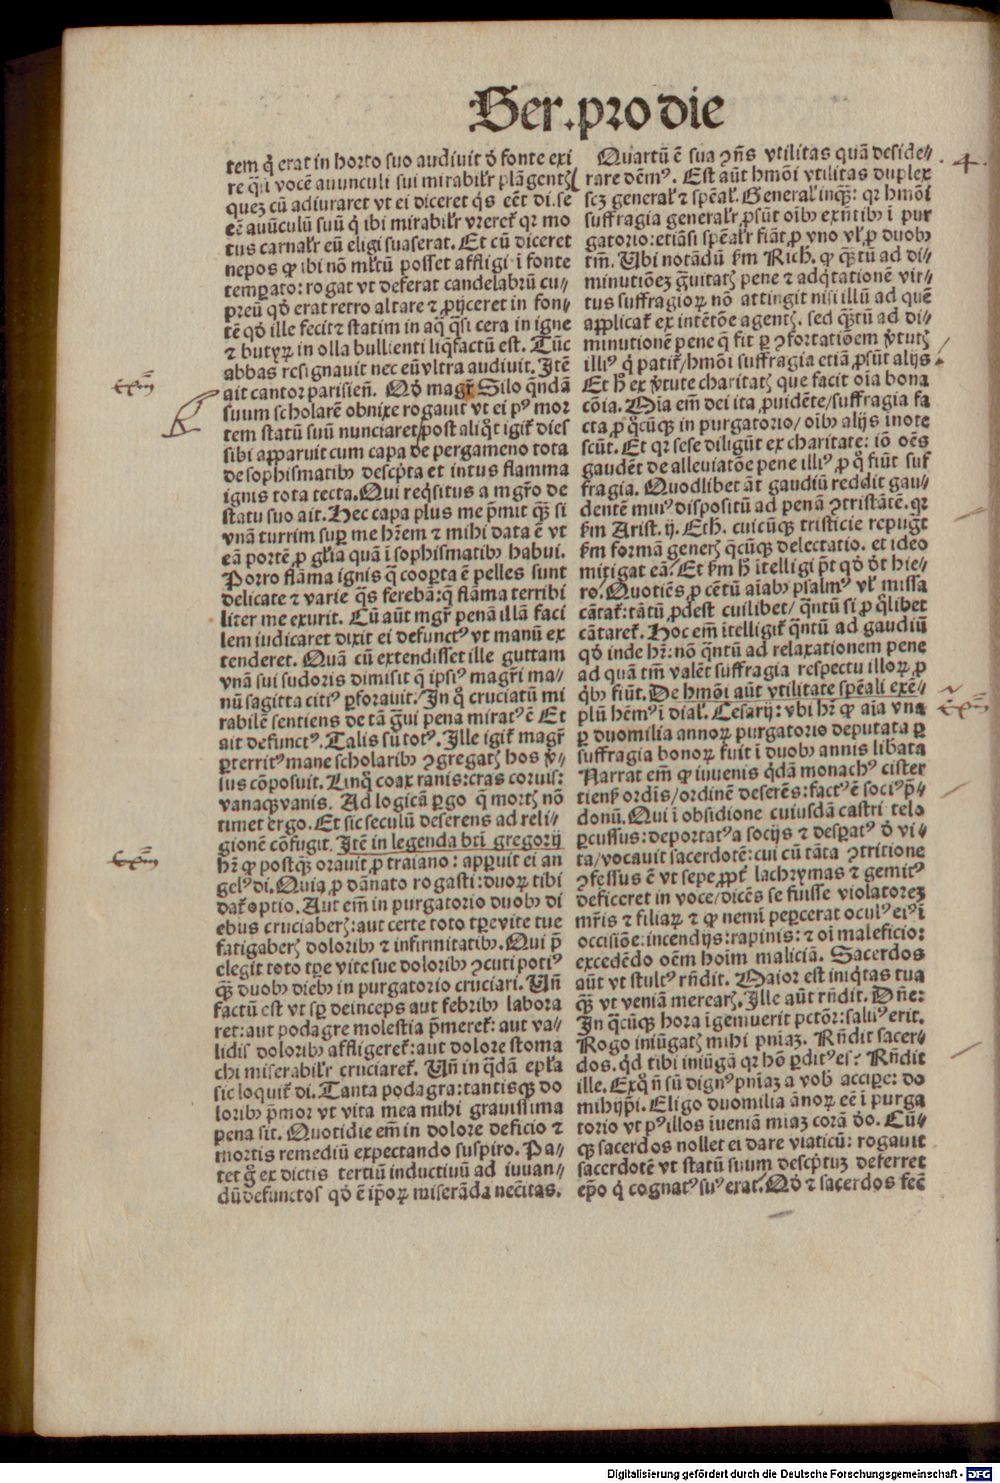 Ser. pro die
tem q̇ erat in horto suo audiuit ꝺ̇ fonte exi
re q̄si vocē auunculi sui mirabilr̄ plāgentꝫ
quez cū adiuraret vt ei diceret q̇s eēt di. se
eē auūculū suū q̇ ibi mirabilr̄ vrerel̄ qꝛ mo
tus carnalr̄ eū eligi suaserat. Et cū diceret
nepos ꝙ ibi nō ml̄tū posset affligi ī fonte
temꝑato: rogat vt deferat candelabrū cu⸗
preū qd̓ erat retro altare ⁊ ꝓijceret in fon⸗
tē qd̓ ille fecit⁊ statim in aq̄ q̄si cera in igne
⁊ butyꝝ in olla bullienti liq̄factū est. Tūc
abbas resignauit nec eū vltra audiuit. Itē
ait cantor parisień. Qd̓ magr̄ Silo q̄ndā
suum scholarē obnixe rogauit vt ei pꝰ mor
tem statū suū nunciaret/post aliq̇t igit̄ dies
sibi apparuit cum capa de pergameno tota
de sophismatibꝰ descp̄ta et intus flamma
ignis tota tecta. Qui req̇situs a mgr̄o de
statu suo ait. Hec capa plus me p̄mit q̄ꝫ si
vnā turrim suꝑ me hr̄em ⁊ mihi data ē vt
eā portē ꝓ gl̄ia quā ī sophismatibꝰ habui.
Porro flāma ignis q̄ cooꝑta ē pelles sunt
delicate ⁊ varie q̄s ferebā: q̄ flāma terribi
liter me exurit. Cū aūt mgr̄ penā illā faci
lem iudicaret dixit ei defunctꝰ vt manū ex
tenderet. Quā cū extendisset ille guttam
vnā sui sudoris dimisit q̄ ipsiꝰ magr̄i ma⸗
nū sagitta citiꝰ ꝑforauit. In q̊ cruciatū mi
rabilē sentiens de tā g̊ui pena miratꝰ ē Et
ait defunctꝰ. Talis sū totꝰ. Ille igit̄ magr̄
ꝑterritꝰ mane scholaribꝰ ꝯgregatꝫ hos v̓⸗
sus cōposuit. Linq̊ coax ranis: cras coruis:
vanaqꝫ vanis. Ad logicā ꝑgo q̄ mortꝫ nō
timet ergo. Et sic seculū deserens ad reli⸗
gionē cōfugit. Itē in legenda bti̅ gregorij
hr̄ ꝙ postq̄ꝫ orauit ꝓ traiano: apꝑuit ei an
gelꝰ di. Quia ꝓ dānato rogasti: duoꝝ tibi
dat̄ optio. Aut em̄ in purgatorio duobꝰ di
ebus cruciaberꝫ: aut certe toto tp̄e vite tue
fatigaberꝫ doloribꝰ ⁊ infirmitatibꝰ. Qui p̄
elegit toto tp̄e vite sue doloribꝰ ꝯcuti potiꝰ
q̄ꝫ duobꝰ diebꝰ in purgatorio cruciari. Vn̄
factū est vt sꝑ deinceps aut febribꝰ labora
ret: aut podagre molestia p̄meret̄: aut va⸗
lidis doloribꝰ affligeret̄: aut dolore stoma
chi miserabilr̄ cruciaret̄. Vn̄ in q̄dā epl̄a
sic loquit̄ di. Tanta podagra: tantisqꝫ do
loribꝰ p̄mor vt vita mea mihi grauissima
pena sit. Quotidie em̄ in dolore deficio ⁊
mortis remediū expectando suspiro. Pa⸗
tet g̊ ex dictis tertiū inductiuū ad iuuan⸗
dū defunctos qd̓ ē ip̄oꝝ miserāda nec̄itas.
Quartū ē sua ꝯn̄s vtilitas quā deside⸗
rare dēmꝰ. Est aūt hmōi vtilitas duplex
scꝫ general̄ ⁊ sp̄eal̄. General̄ inq̄ꝫ: qꝛ hmōi
suffragia generalr̄ ꝓsūt oībꝰ exn̄tibꝰ ī pur
gatorio: etiāsi sp̄ealr̄ fiāt ꝓ vno vl̓ ꝓ duobꝰ
tm̄. Vbi notādū ẜm Rich. ꝙ q̄ꝫtū ad di⸗
minutiōeꝫ g̊uitatꝫ pene ⁊ adq̇tationē vir⸗
tus suffragioꝝ nō attingit nisi illū ad quē
applicat̄ ex intētōe agentꝫ. sed q̄ꝫtū ad di⸗
minutionē pene q̄ fit ꝑ ꝯfortatiōem v̓tutꝫ
illiꝰ q̇ patit̄/hmōi suffragia etiā ꝓsūt alijs
Et h̓ ex v̓tute charitatꝫ que facit oīa bona
cōia. Oīa em̄ dei ita ꝓuidēte/suffragia fa
cta ꝓ q̊cūqꝫ in purgatorio/oībꝰ alijs inote
scūt. Et qꝛ sese diligūt ex charitate: iō oēs
gaudēt de alleuiatōe pene illiꝰ ꝓ q̊ fiūt suf
fragia. Quodlibet āt gaudiū reddit gau⸗
dentē minꝰ dispositū ad penā ꝯtristātē. qꝛ
ẜm Arist. ij. Eth. cuicūqꝫ tristicie repugt̄
ẜm formā generꝫ q̄cūqꝫ delectatio. et ideo
mitigat eā. Et ẜm h̓ ītelligi p̄t qd̓ d̓t hie⸗
ro. Quotiēs ꝓ cētū aīabꝰ psalmꝰ vl̓ missa
cātat̄: tātū ꝓdest cuilibet/ q̄ntū si ꝓ q̊libet
cātaret̄. Hoc em̄ ītelligit̄ q̄ntū ad gaudiū
qd̓ inde hr̄: nō q̄ntū ad relaxationem pene
ad quā tm̄ valēt suffragia respectu illoꝝ ꝓ
q̇bꝰ fiūt. De hmōi aūt vtilitate sp̄eali exē⸗
plū hēmꝰ ī dial̓. Cesarij: vbi hr̄ ꝙ aīa vna
ꝑ duomilia annoꝝ purgatorio deputata ꝑ
suffragia bonoꝝ fuit ī duobꝰ annis lib̓ata
Narrat em̄ ꝙ iuuenis q̇dā monachꝰ cister
tień ordīs/ordinē deserēs: factꝰ ē sociꝰ p̄⸗
donū. Qui ī obsidione cuiusdā castri telo
ꝑcussus: deportatꝰ a socijs ⁊ desꝑatꝰ ꝺ̇ vi⸗
ta/vocauit sacerdotē: cui cū tāta ꝯtritione
ꝯfessus ē vt sepe ꝓpt̄ lachrymas ⁊ gemitꝰ
deficeret in voce/dicēs se fuisse violatoreꝫ
mr̄is ⁊ filiaꝝ ⁊ ꝙ nemī peꝑcerat oculꝰ eiꝰ ī
occisiōe: incendijs: rapinis: ⁊ oī maleficio:
excedēdo oēm hoīm maliciā. Sacerdos
aūt vt stultꝰ rn̄dit. Maior est iniq̇tas tua
q̄ꝫ vt veniā merearꝫ. Ille aūt rn̄dit. Dn̄e:
In q̄cūqꝫ hora īgemuerit pctōr: saluꝰ erit.
Rogo iniūgatꝫ mihi pn̄iaꝫ. Rn̄dit sacer⸗
dos. q̇d tibi iniūgā qꝛ hō ꝑditꝰ es? Rn̄dit
ille. Exq̊ n̄ sū dignꝰ pn̄iaꝫ a vob̓ acciꝑe: do
mihijp̄i. Eligo duomilia ānoꝝ eē ī purga
torio vt pꝰ illos īueniā miaꝫ corā do. Cū⸗
qꝫ sacerdos nollet ei dare viaticū: rogauit
sacerdotē vt statū suum descp̄tuꝫ deferret
ep̄o q̇ cognatꝰ suꝰ erat. Qd̓ ⁊ sacerdos fec̄
·4·
Digitalisierung gefördert durch die Deutsche Forschungsgemeinschaft - DFG